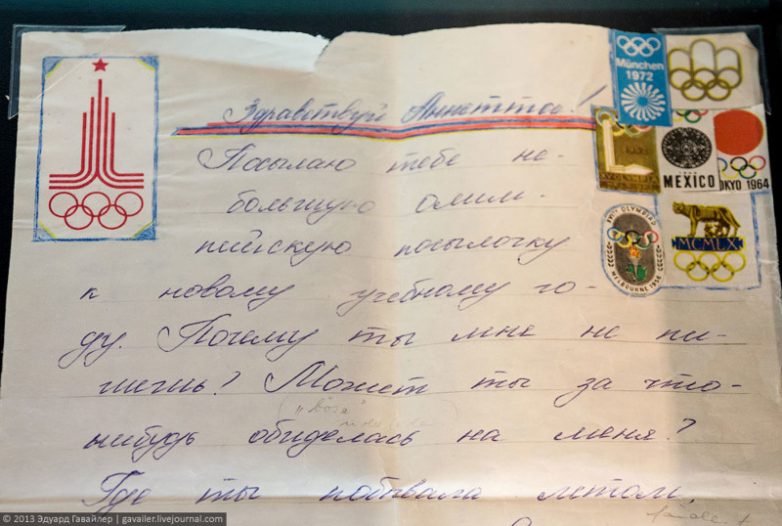 München
1972
MEXICO
TOKYO 1964
XVITH OLYMPIAD
MELBOURNE 1956
MCMLX
Здравствуй Аннеттое!
Посылаю тебе не-
большую олим-
пийскую посылочку
к новому учебному го-
ду. Почему ты мне не пи-
шешь? Может ты за что-
"böse"
нибудь обиделась на меня?
Где ты побывала летом,
© 2013 Эдуард Гавайлер | gavailer.livejournal.com